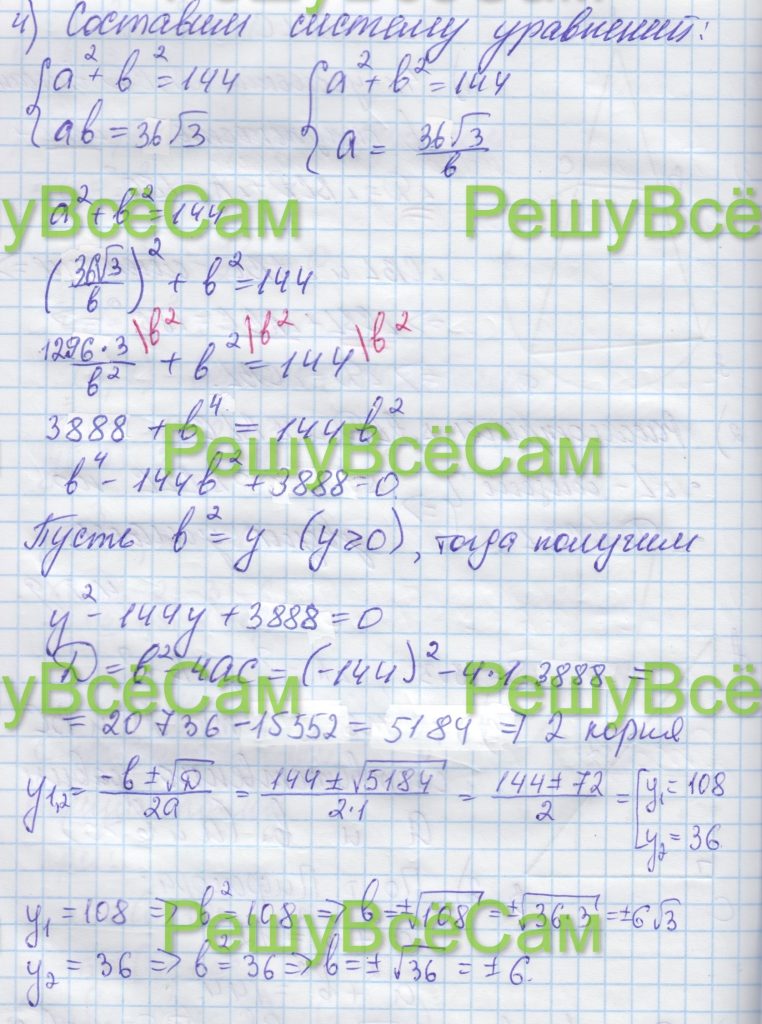 4) Составим систему уравнений:
{a² + b² = 144 {a² + b² = 144
{ab = 36√3 {a = 36√3/b
a² + b² = 144
уВсёСам РешуВсё
(36√3/b)² + b² = 144
1296·3/b² \b² + b² \b² = 144 \b²
3888 + b⁴ = 144b²
РешуВсёСам
b⁴ - 144b² + 3888 = 0
Пусть b² = y (y ≥ 0), тогда получим
y² - 144y + 3888 = 0
D = b² - 4ac = (-144)² - 4·1·3888 =
уВсёСам РешуВсё
= 20736 - 15552 = 5184 ⇒ 2 корня
y₁,₂ = (-b ± √D)/2a = (144 ± √5184)/2·1 = (144 ± 72)/2 = [y₁ = 108
[y₂ = 36
y₁ = 108 ⇒ b² = 108 ⇒ b = ±√108 = ±√36·3 = ±6√3
РешуВсёСам
y₂ = 36 ⇒ b² = 36 ⇒ b = ±√36 = ±6.